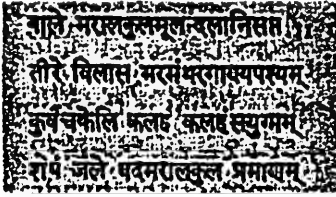 बाले मरालकुलमूलदलानिसप्त
तीरे विलास भरमंथरगाण्यपश्यम्
कुर्वचकेलि कलहं कलहंसयुग्मम्
शेषं जले वदमरालकुल प्रमाणम्